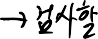 → 검사할